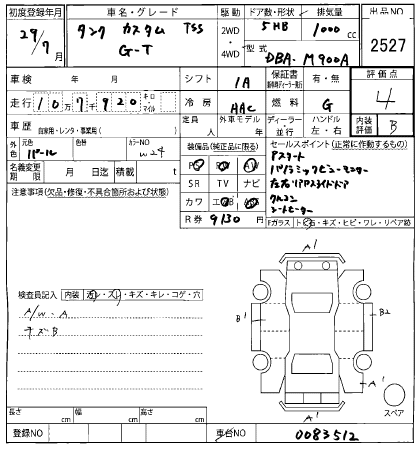 初度登録年月 車名・グレード 駆動 ドア数・形状 排気量 出品NO
29/7月 タンク カスタム TSS G-T 2WD・4WD 5HB 1000cc 2527
型式 DBA-M900A
車検 年 月 シフト IA 保証書 有・無 評価点
走行 10万7千920 キロ・マイル 冷房 AAC 燃料 G 4
車歴 自家用・レンタ・事業用( ) 定員 人 外車モデル 年 ディーラー・並行 ハンドル 左・右 内装評価 B
外色 元色 パール 色替 カラーNO W24 装備品(純正品に限る) セールスポイント(正常に作動するもの)
名義変更期限 月 日 積載 t
注意事項(欠品・修復・不具合箇所および状態)
SR TV ナビ
カワ
R券 9130 円
アスタート
パノラミックビューモニター
左右リアPスライドドア
クルコン
シートヒーター
Fガラス ト・キズ・ヒビ・ワレ・リペア跡
検査員記入 内装 汚レ・スレ・キズ・キレ・コゲ・穴
A/W・A
キズB
A1
B1
B2
A1
A1
スペア
長さ cm 幅 cm 高さ cm
登録NO 車台NO 0083512